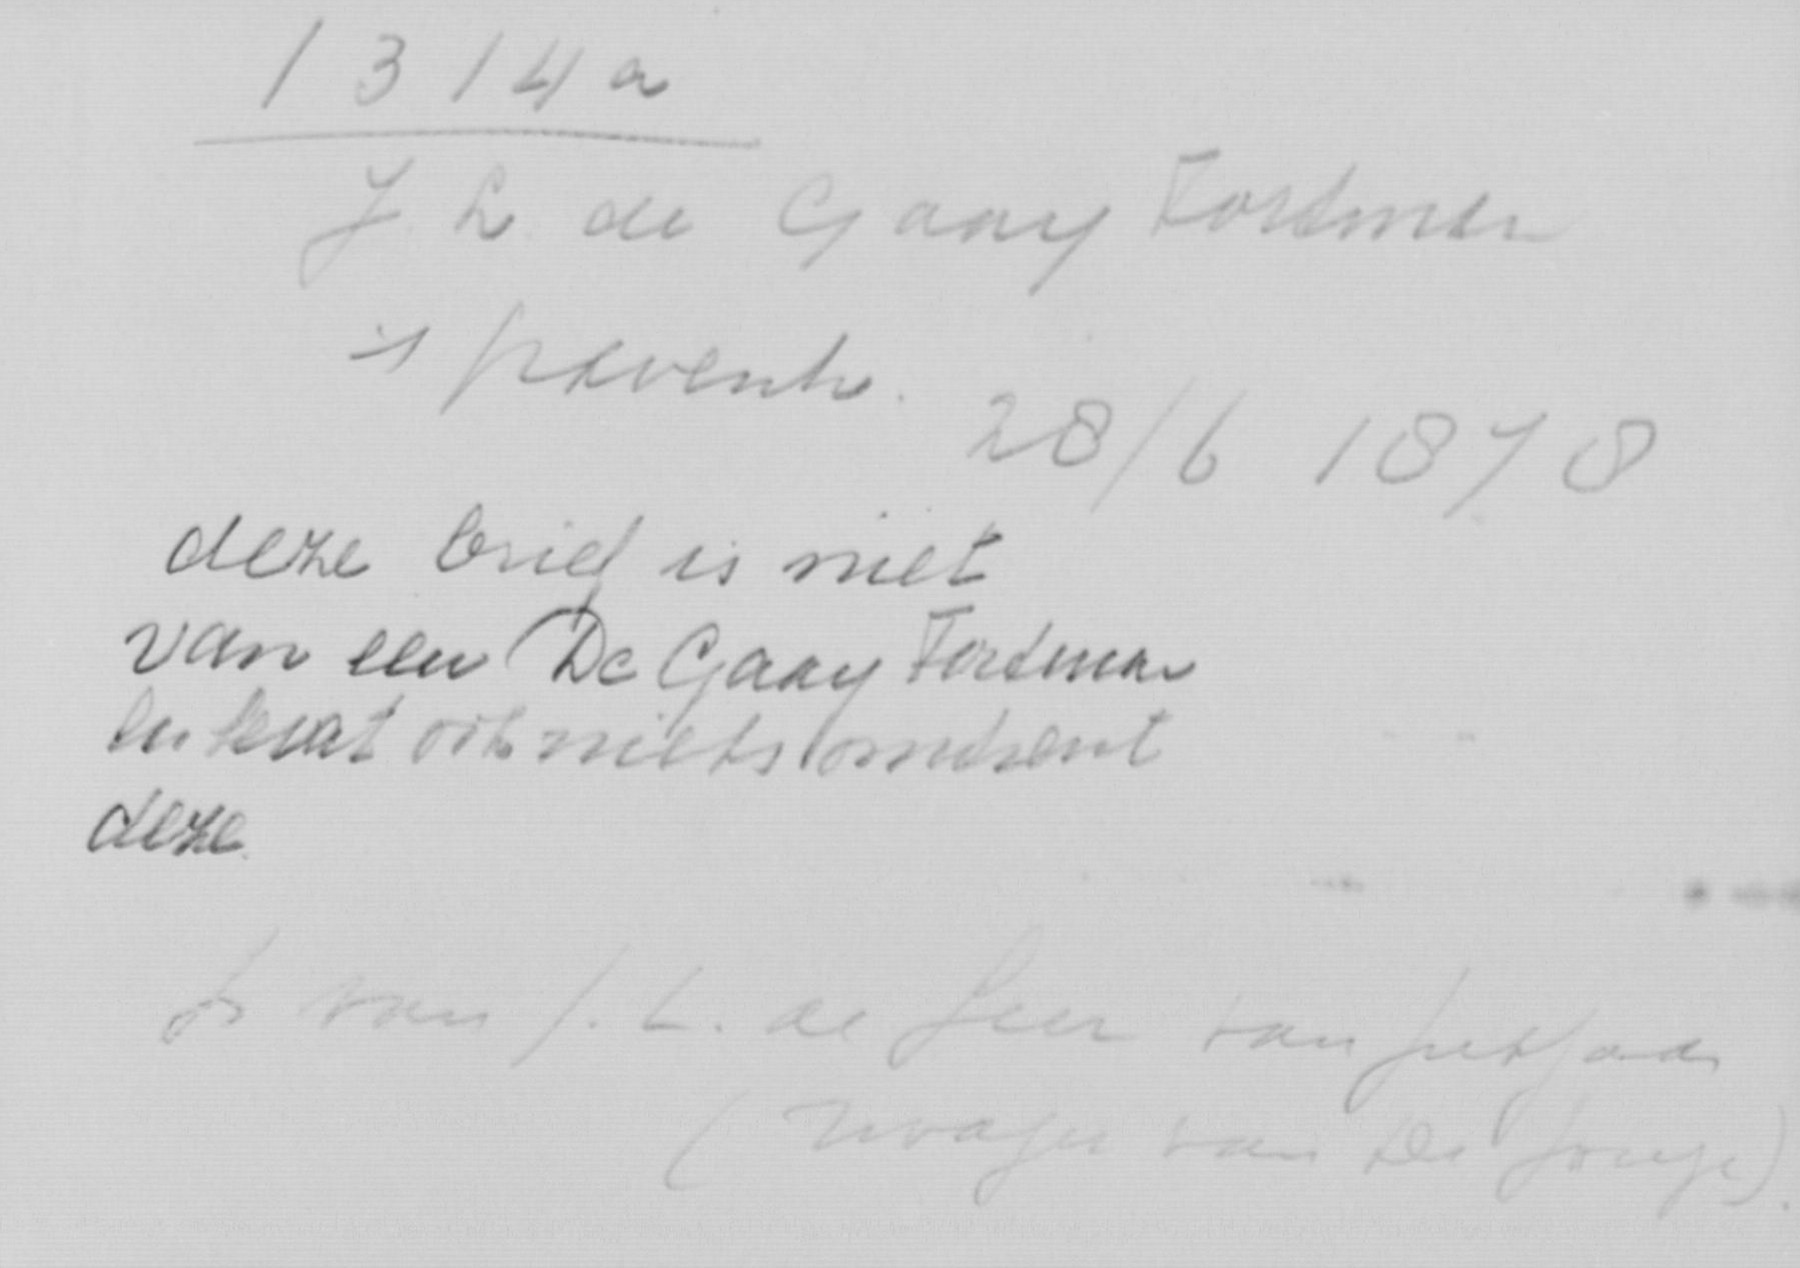 1314a
J. L. de Gaay Fortman
is
28/6 1878
deze brief is niet
van een De Gaay Fortman
en bevat ook niets omtrent
deze.
Is van J. L. de Geer van Jutfaas
(zwager van De Jonge).